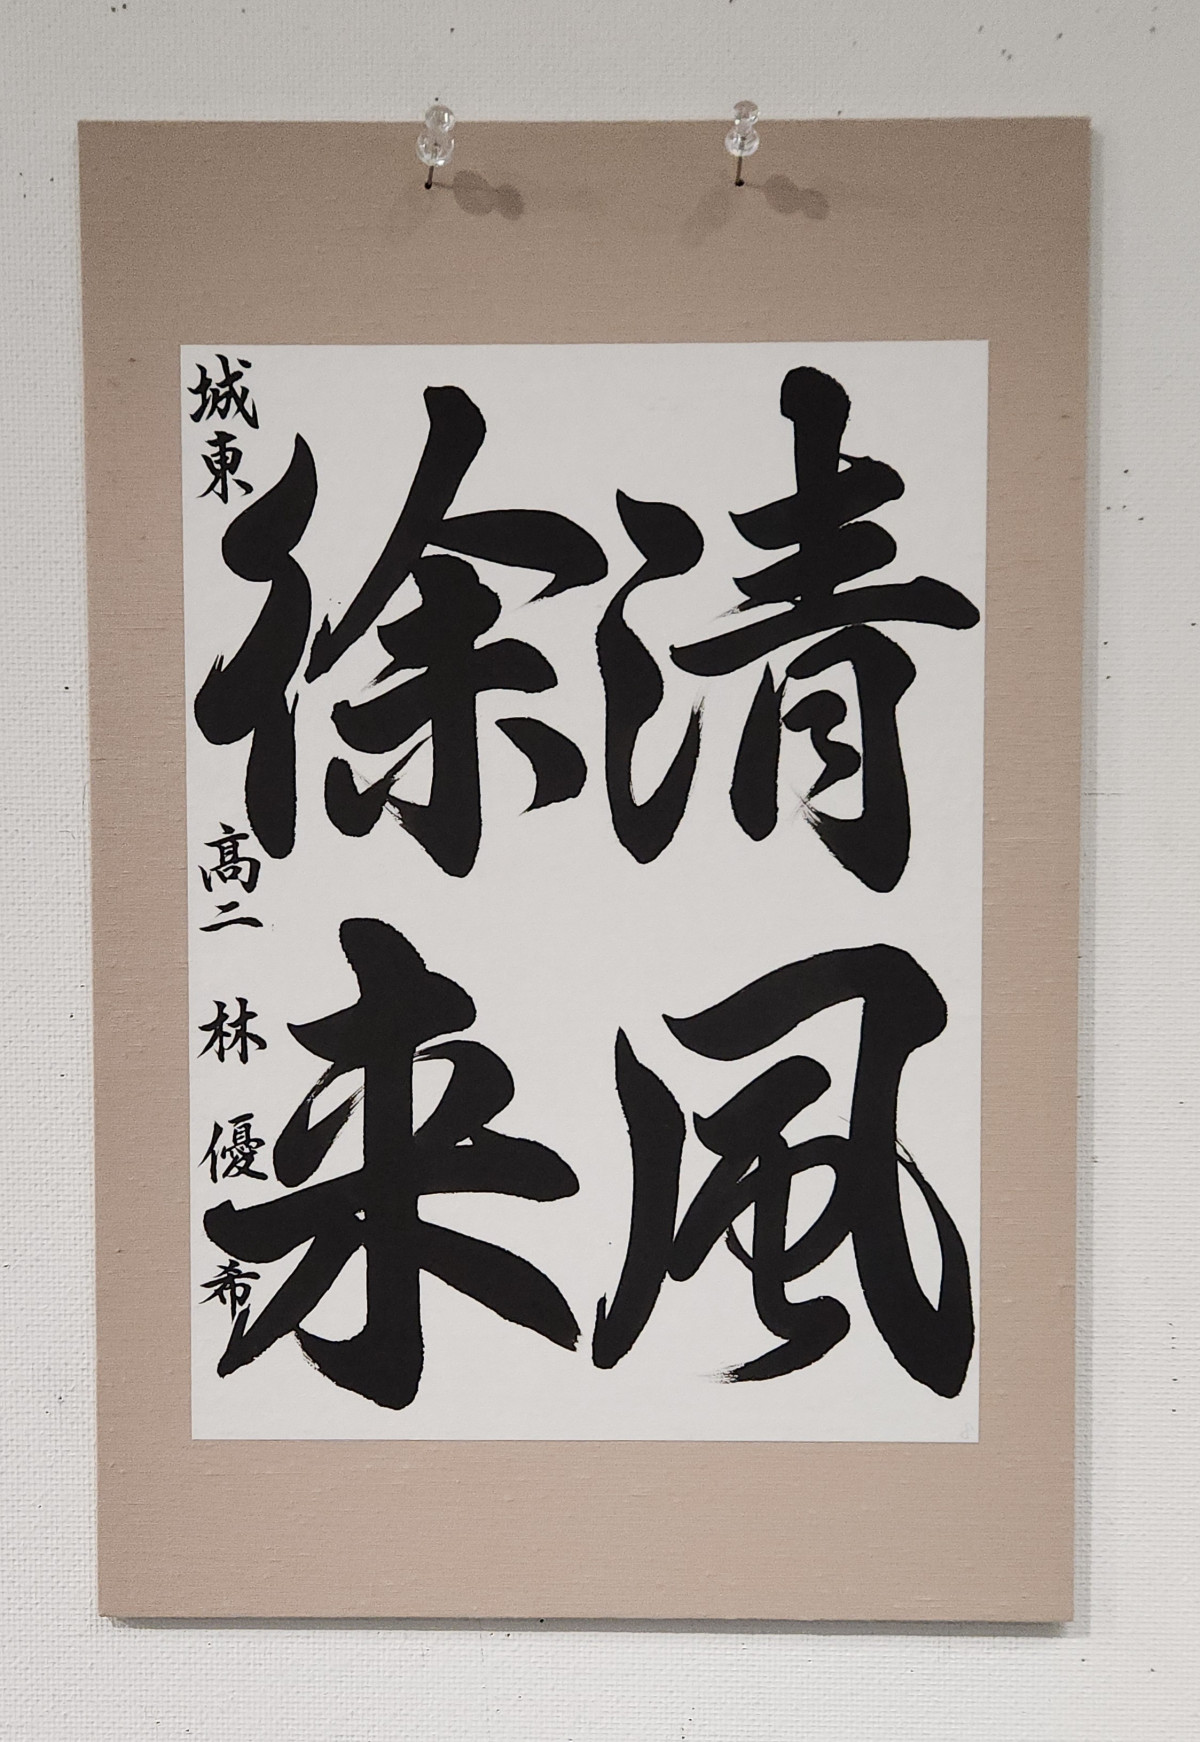 清風
徐来
城東 高二 林 優希